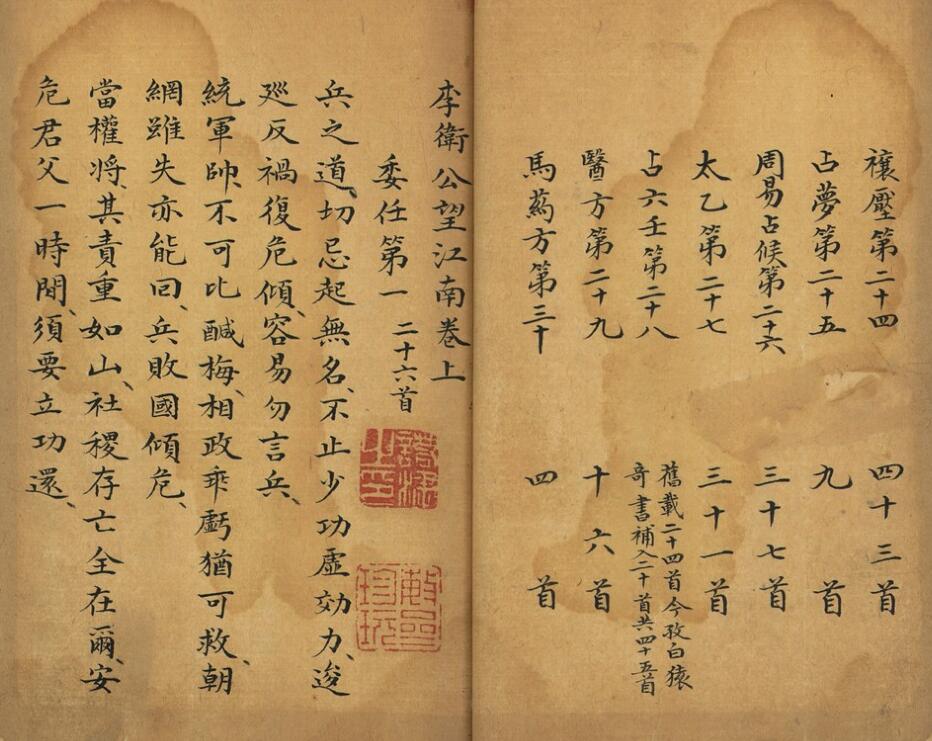 禳壓第二十四 四十三首
占夢第二十五 九首
周易占候第二十六 三十七首
太乙第二十七 三十一首
占六壬第二十八 舊載二十四首今攷白猿
奇書補入二十首共四十五首
醫方第二十九 十六首
馬药方第三十 四首
李衛公望江南卷上
委任第一 二十六首
兵之道、切忌起無名、不止少功虛効力、逡
廵反禍復危傾、容易勿言兵、
統軍帥、不可比醎梅、相政乖虧猶可救、朝
綱雖失亦能回、兵敗國傾危、
當權將、其責重如山、社稷存亡全在爾、安
危君父一時間、須要立功還、